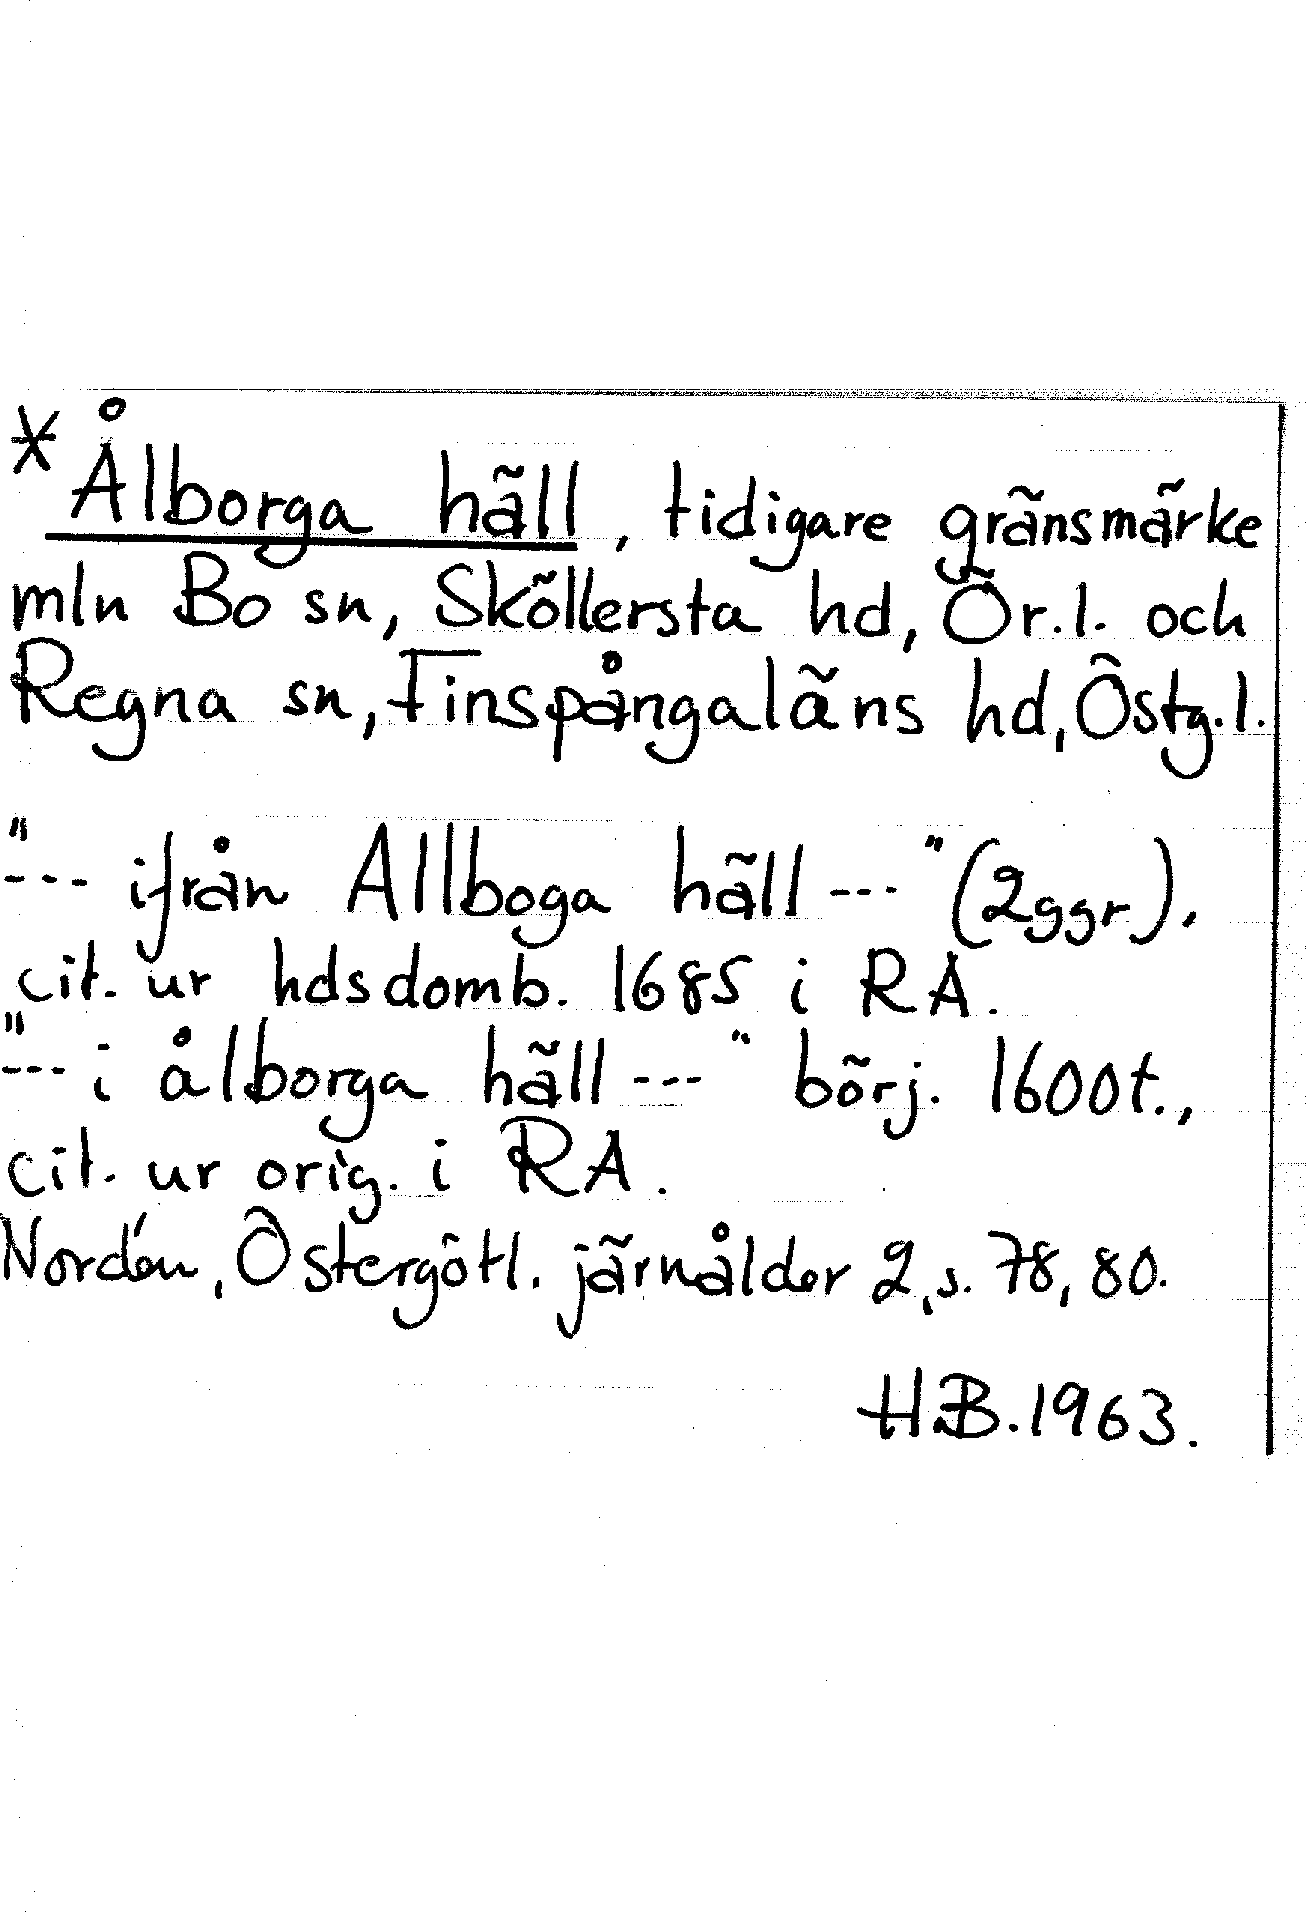 * Ålborga häll, tidigare gränsmärke
mln Bo sn, Sköllersta hd, Ör.l. och
Regna sn, Finspångaläns hd, Östg.l.
"--- ifrån Allboga häll ---" (2ggr),
cit. ur hdsdomb. 1685 i RA.
"--- i ålborga häll ---" börj. 1600t.,
cit. ur orig. i RA.
Nordén, Östergötl. järnålder 2, s. 78, 80.
H.B. 1963.